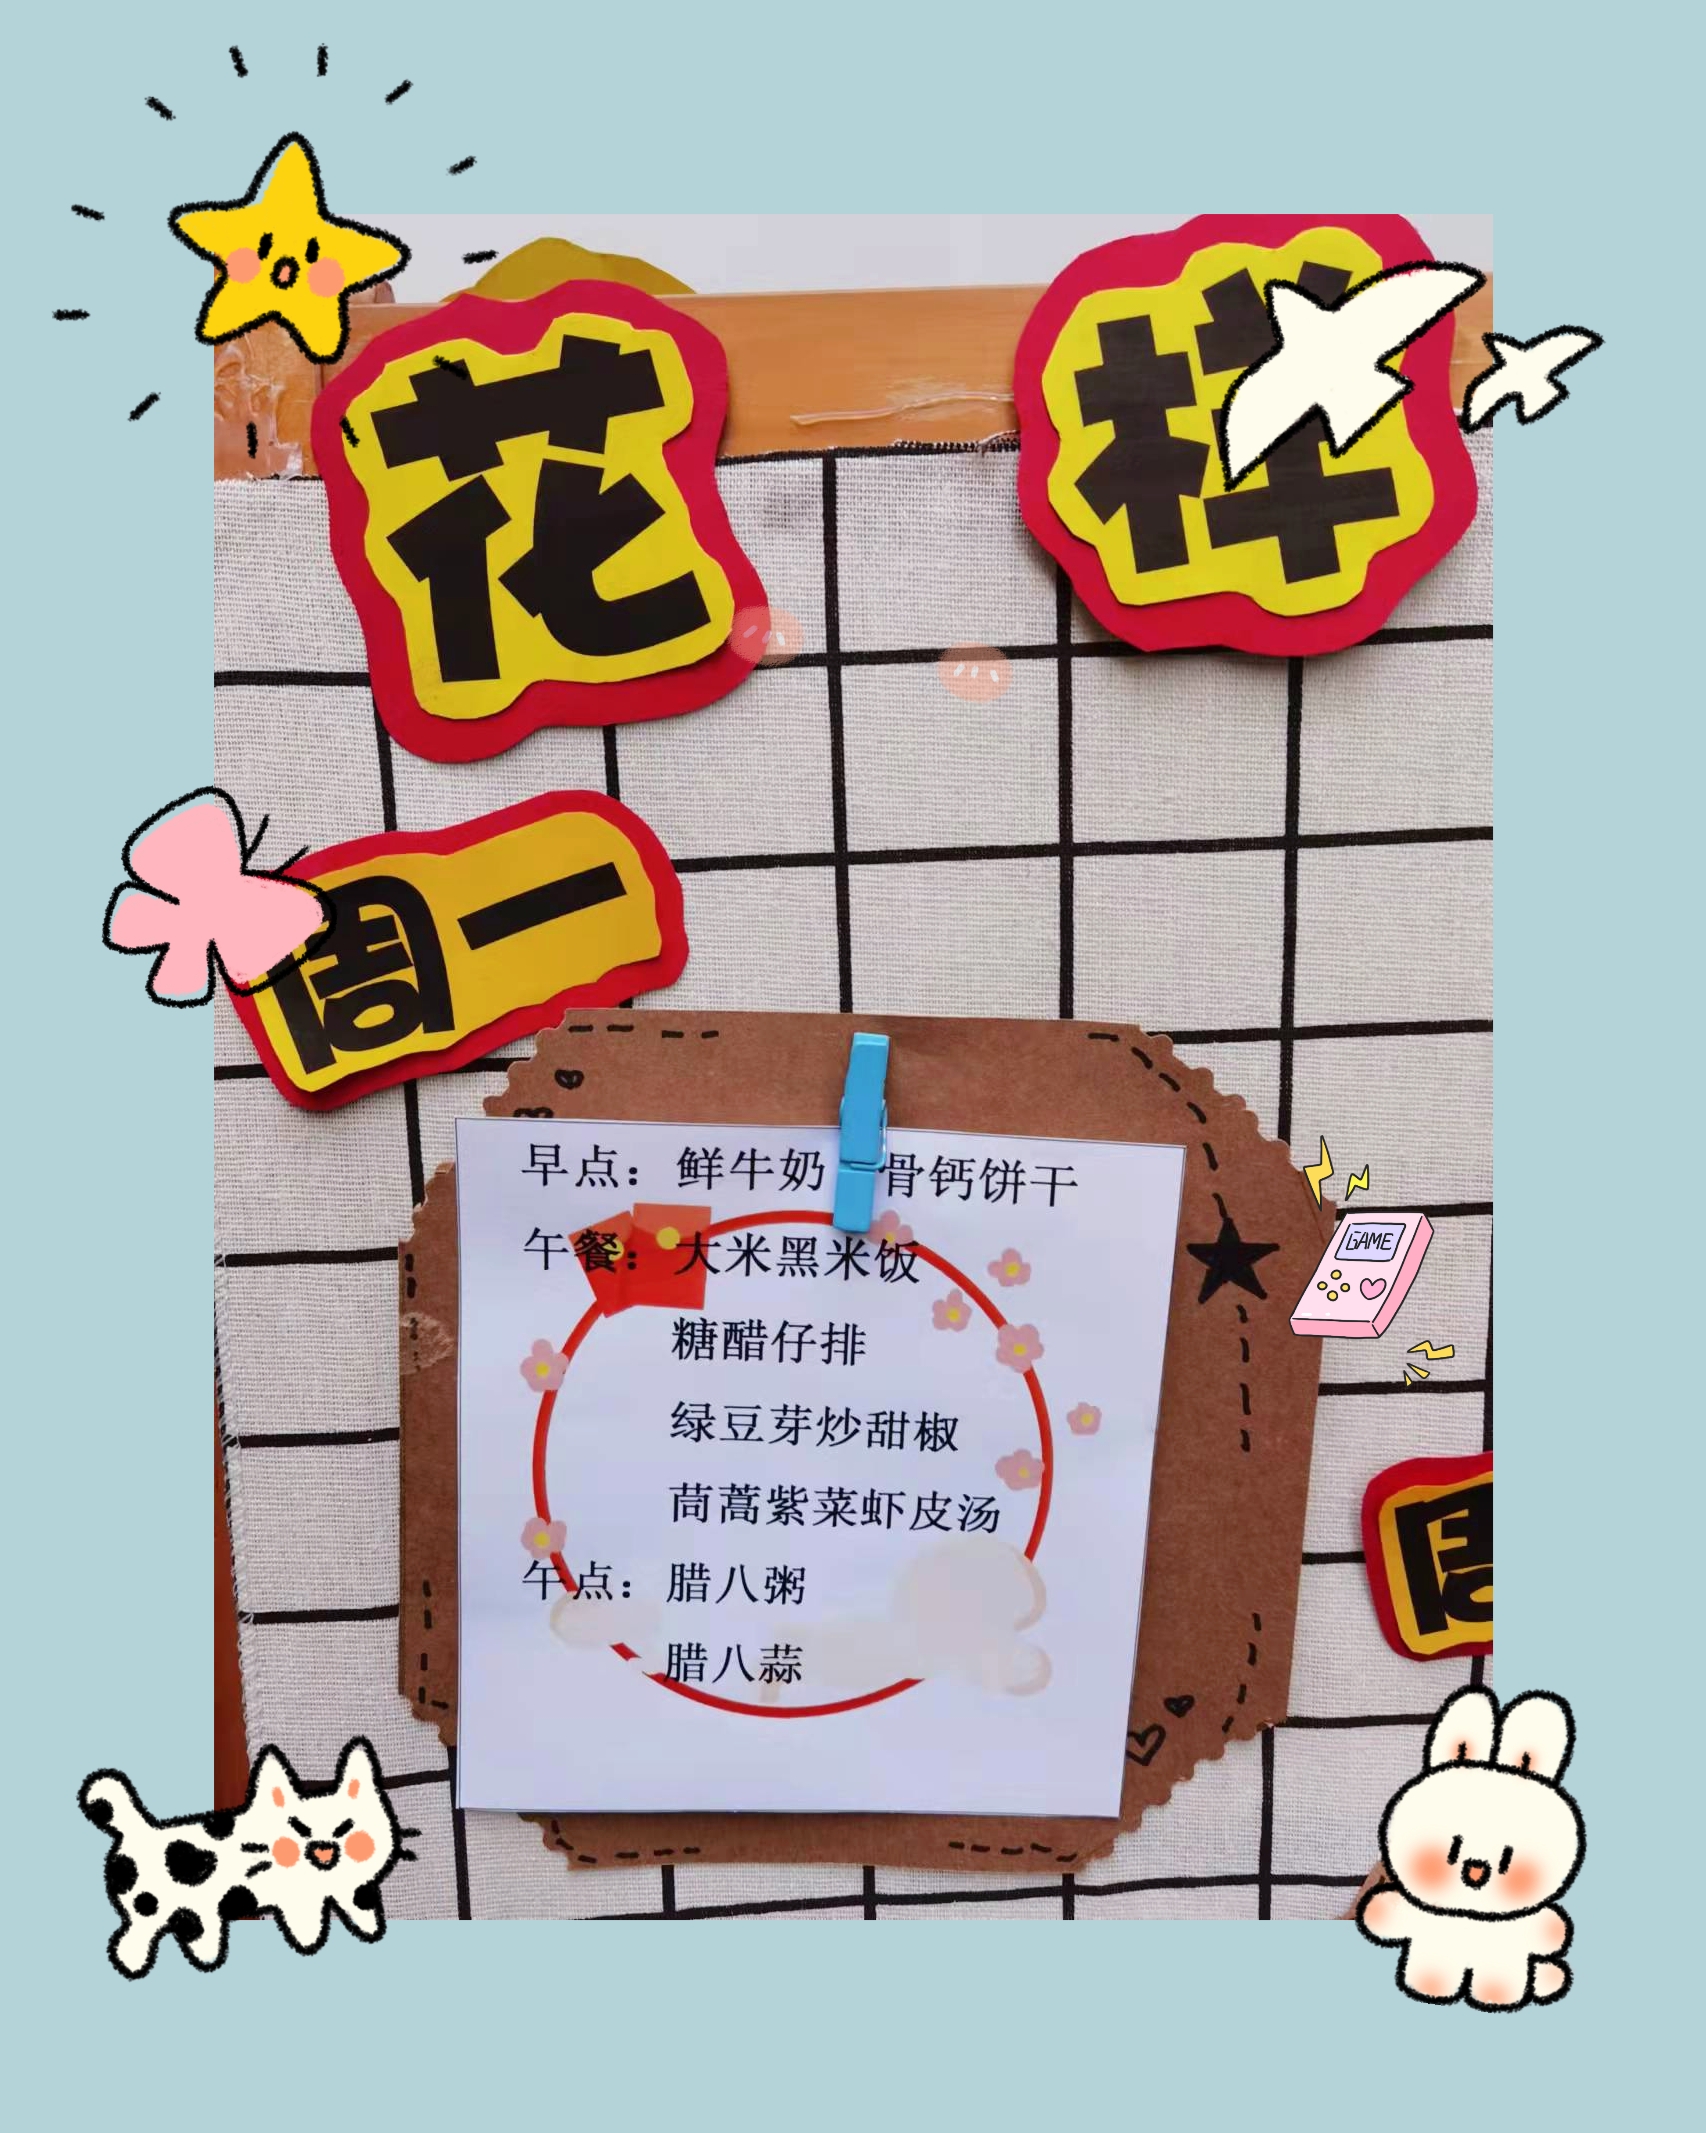 花样
周一
早点：鲜牛奶 骨钙饼干
午餐：大米黑米饭
糖醋仔排
绿豆芽炒甜椒
茼蒿紫菜虾皮汤
午点：腊八粥
腊八蒜
GAME
周